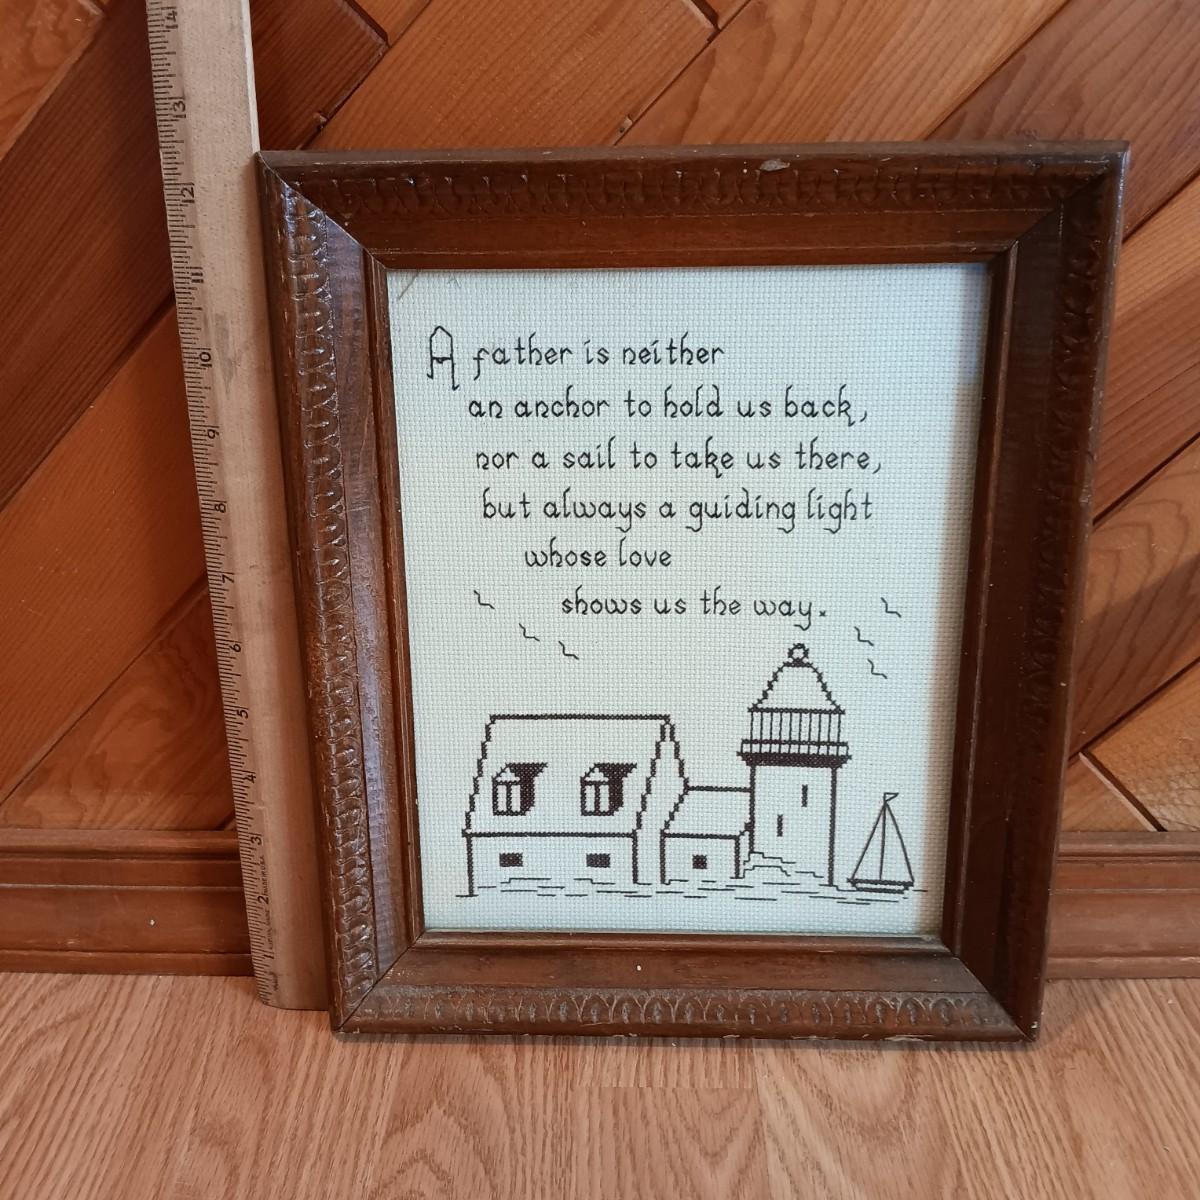 A father is neither
an anchor to hold us back,
nor a sail to take us there,
but always a guiding light
whose love
shows us the way.
14
13
12
11
10
9
8
7
6
5
4
3
2
1